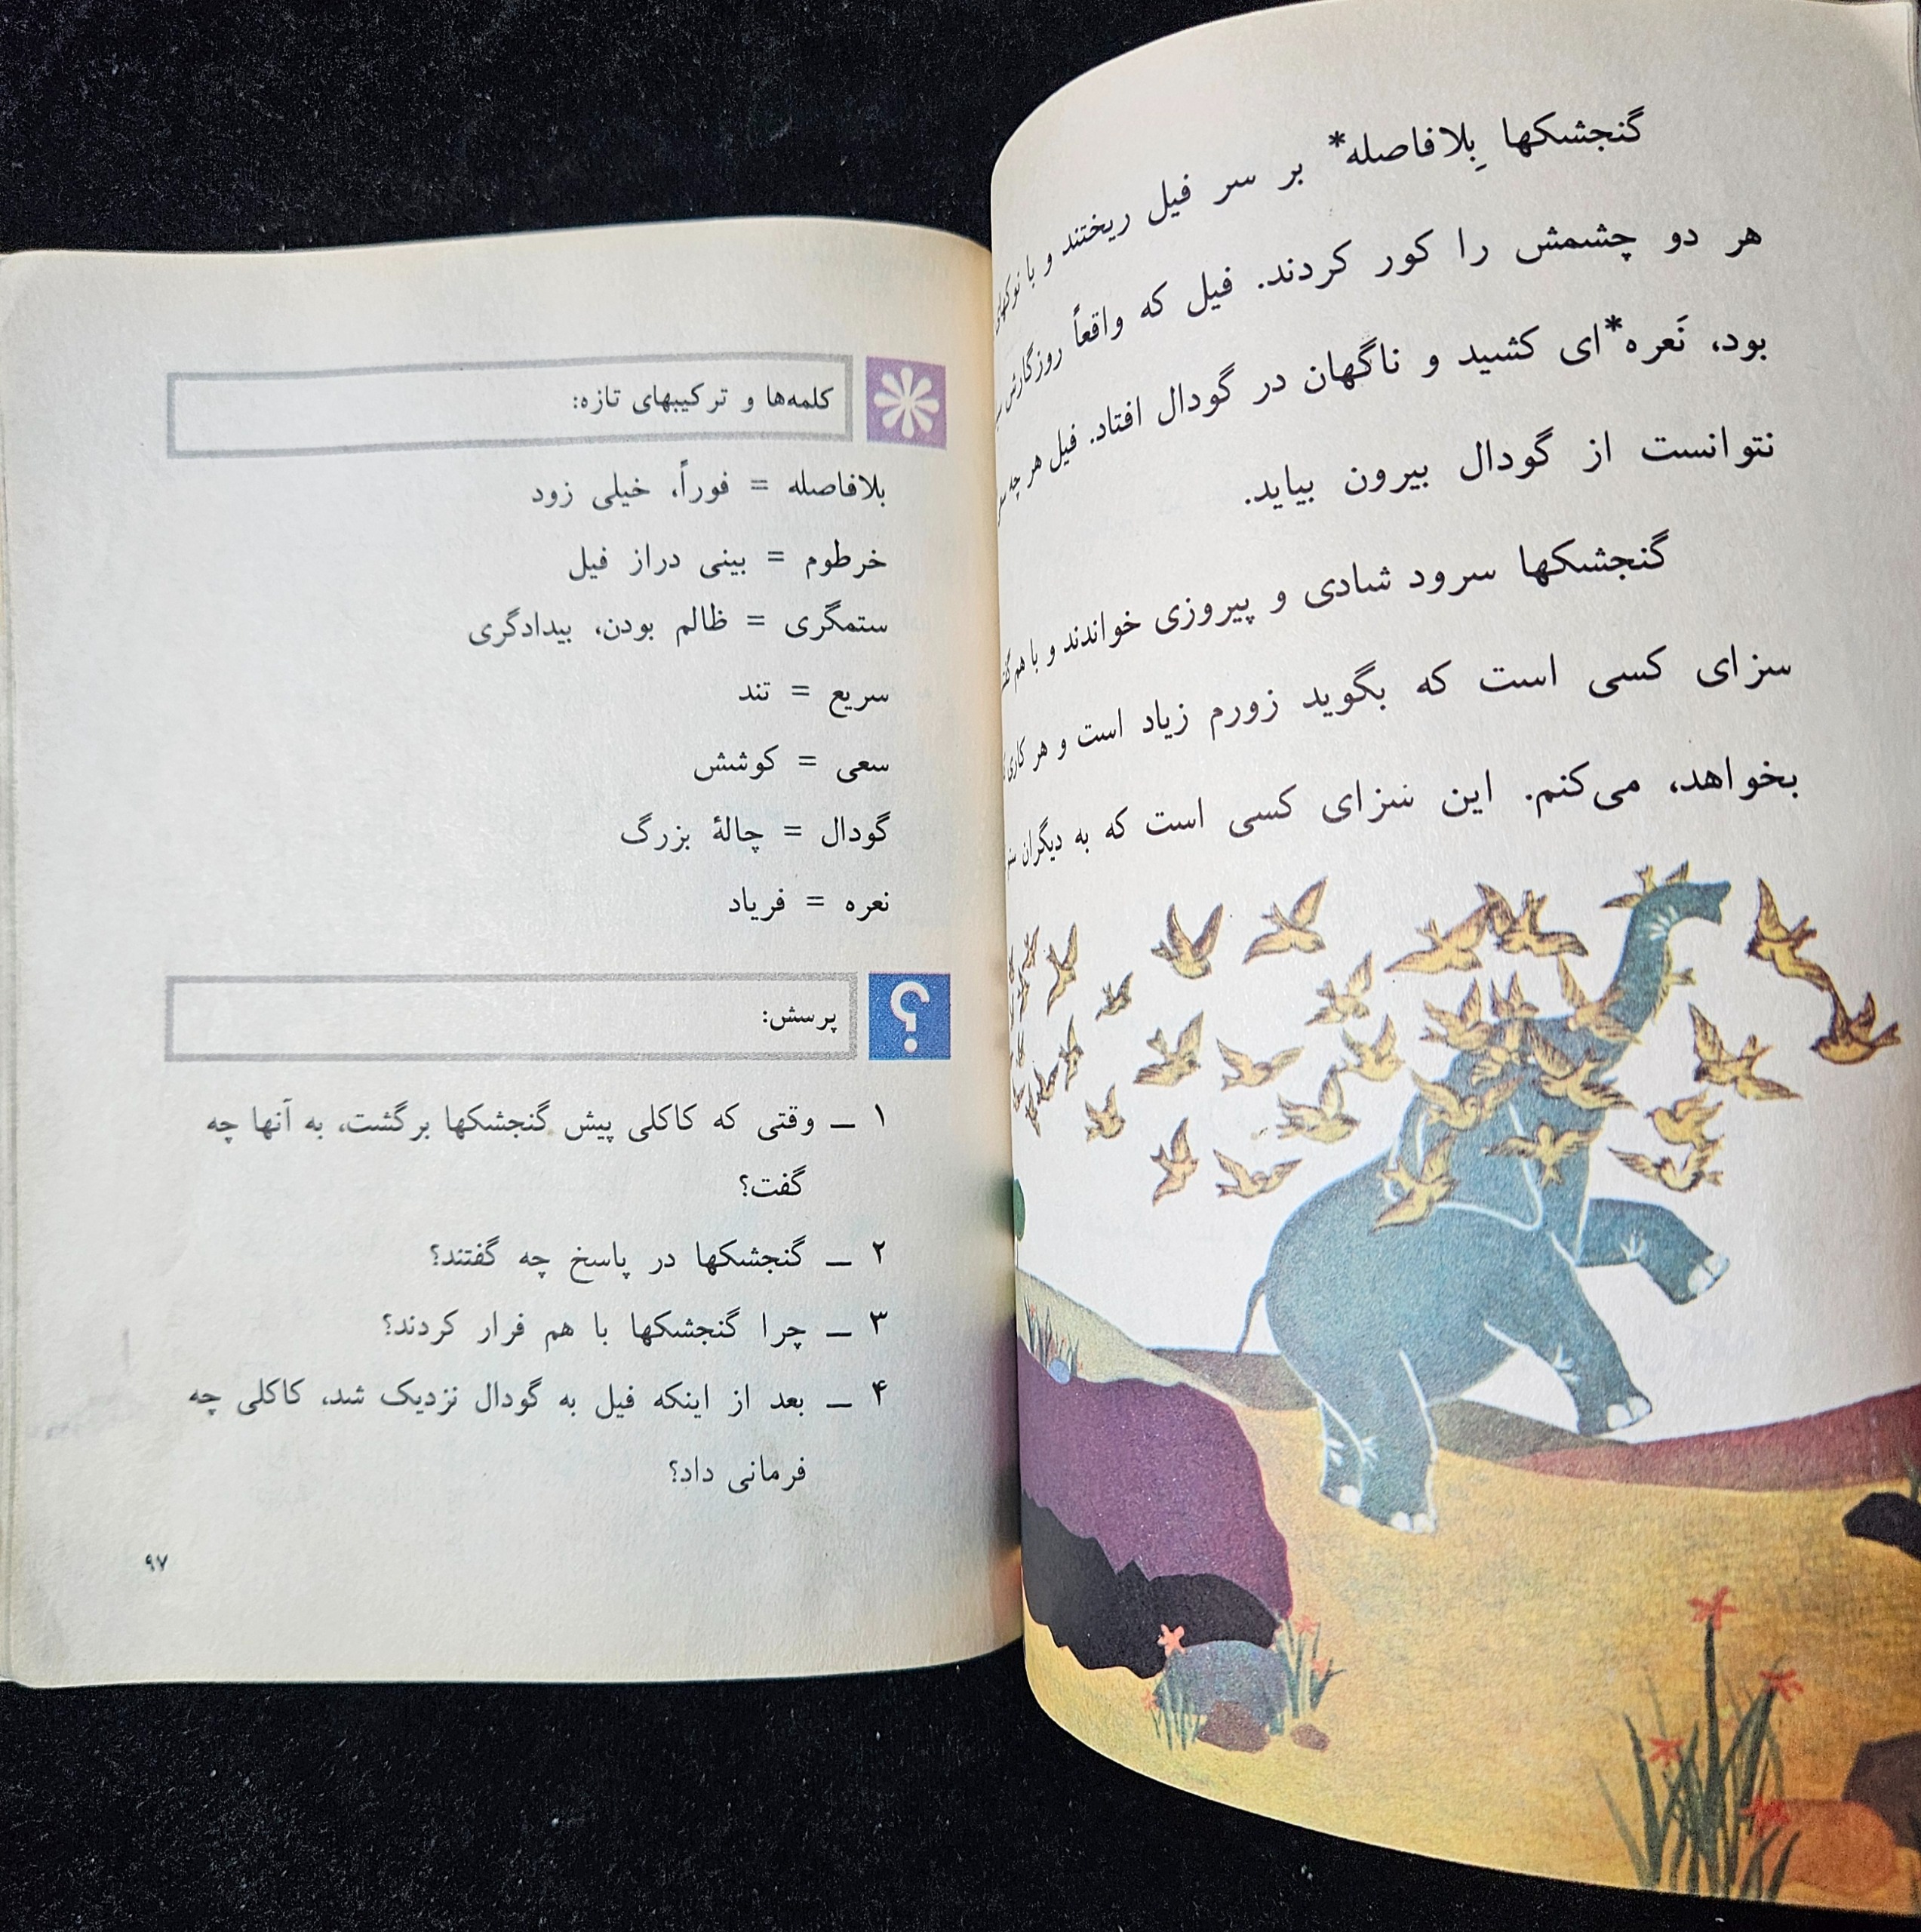 گنجشکها بِلافاصله* بر سر فیل ریختند و با نوکهای
هر دو چشمش را کور کردند. فیل که واقعاً روزگارش
بود، نَعره*ای کشید و ناگهان در گودال افتاد. فیل هر چه
نتوانست از گودال بیرون بیاید.
گنجشکها سرود شادی و پیروزی خواندند و با هم
سزای کسی است که بگوید زورم زیاد است و هر کاری
بخواهد، می‌کنم. این سزای کسی است که به دیگران
کلمه‌ها و ترکیبهای تازه:
بلافاصله = فوراً، خیلی زود
خرطوم = بینی دراز فیل
ستمگری = ظالم بودن، بیدادگری
سریع = تند
سعی = کوشش
گودال = چالهٔ بزرگ
نعره = فریاد
؟
پرسش:
۱ ـ وقتی که کاکلی پیش گنجشکها برگشت، به آنها چه
گفت؟
۲ ـ گنجشکها در پاسخ چه گفتند؟
۳ ـ چرا گنجشکها با هم فرار کردند؟
۴ ـ بعد از اینکه فیل به گودال نزدیک شد، کاکلی چه
فرمانی داد؟
۹۷